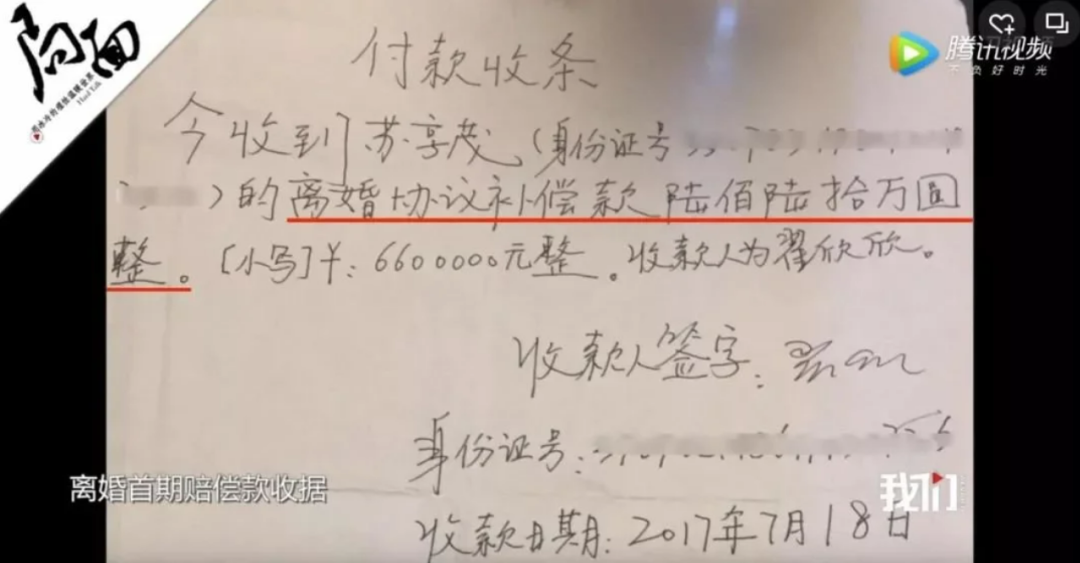 局面
Hard Talk
腾讯视频
不负好时光
付款收条
今收到苏享茂(身份证号
)的离婚协议补偿款陆佰陆拾万圆
整。[小写]￥:6600000元整。收款人为翟欣欣。
收款人签字:
身份证号:
离婚首期赔偿款收据
我们
收款日期:2017年7月18日